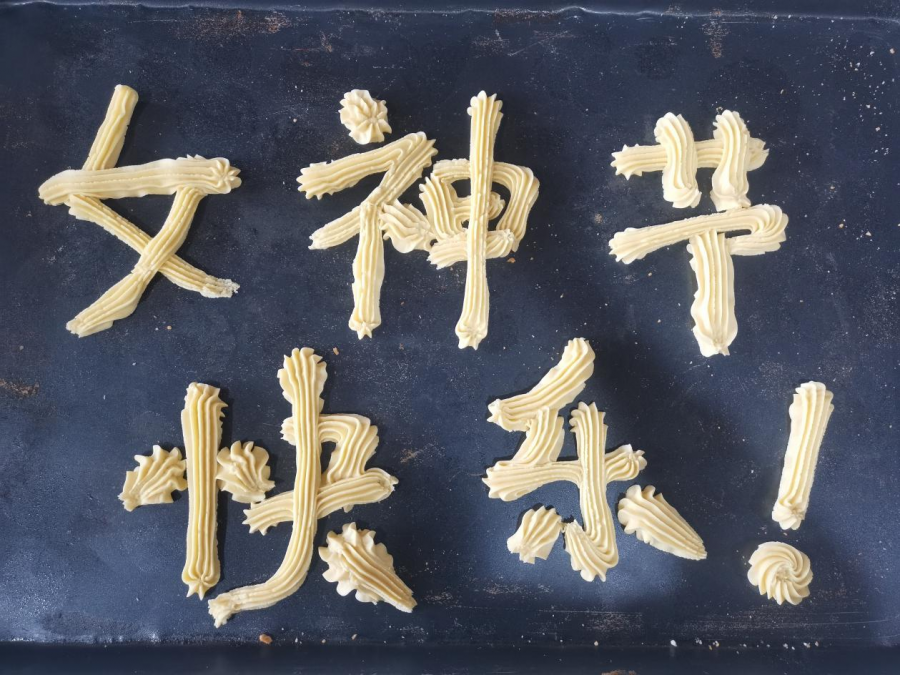 女神节
快乐!